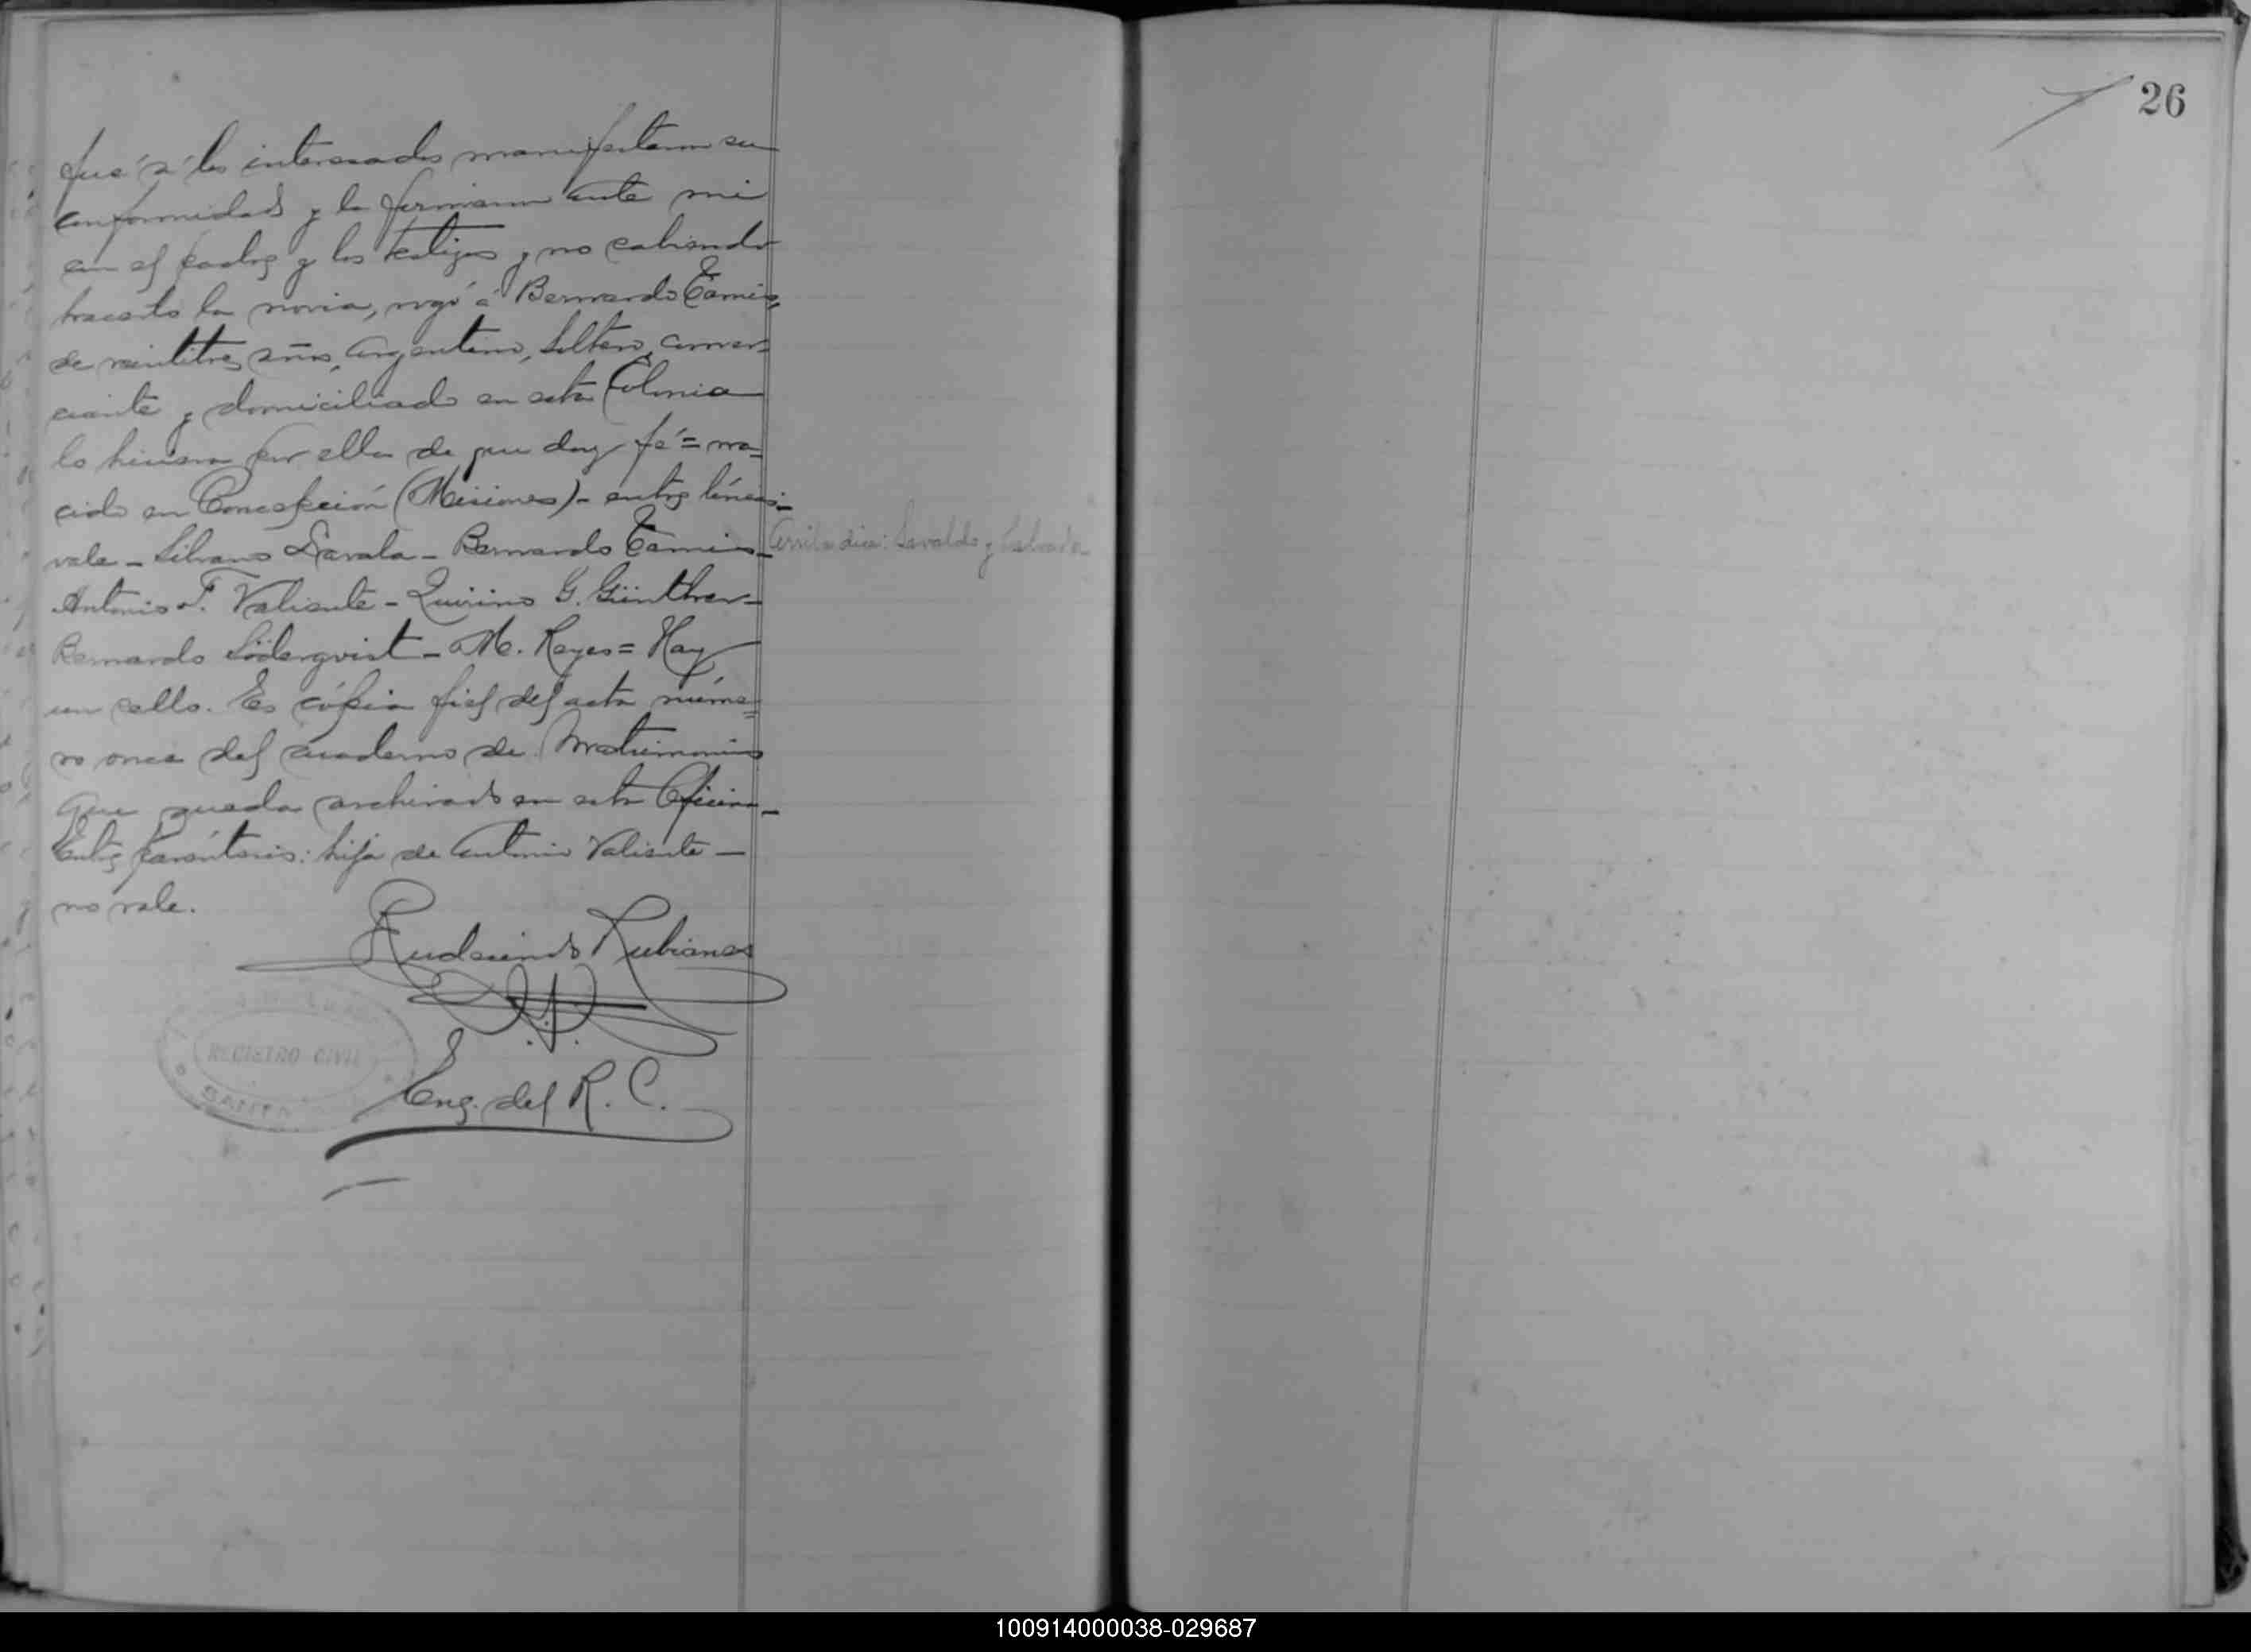 fué á los interesados manifestaron su
conformidad y la firmaron ante mi
con el padre y los testigos y no sabiendo
hacerlo la novia, rogó á Bernardo Cámis,
de veintitres años, argentino, soltero, comer-
ciante y domiciliado en esta Colonia
lo hiciera por ella de que doy fé = na-
cido en Concepción (Misiones) - entre líneas -
vale - Silvano - Bernardo Cámis -
Arriba dice:
Antonio F. Valiente - Quirino G. Günther -
Bernardo Söderqvist - M. Reyes = Hay
un sello. Es cópia fiel del acta núme-
ro once del cuaderno de Matrimonios
que queda archivado en esta Oficina -
Entre paréntesis: hija de Antonio Valiente -
no vale.
Rudesindo Rubianes
Eng. del R. C.
REGISTRO CIVIL
SANTA
26
100914000038-029687